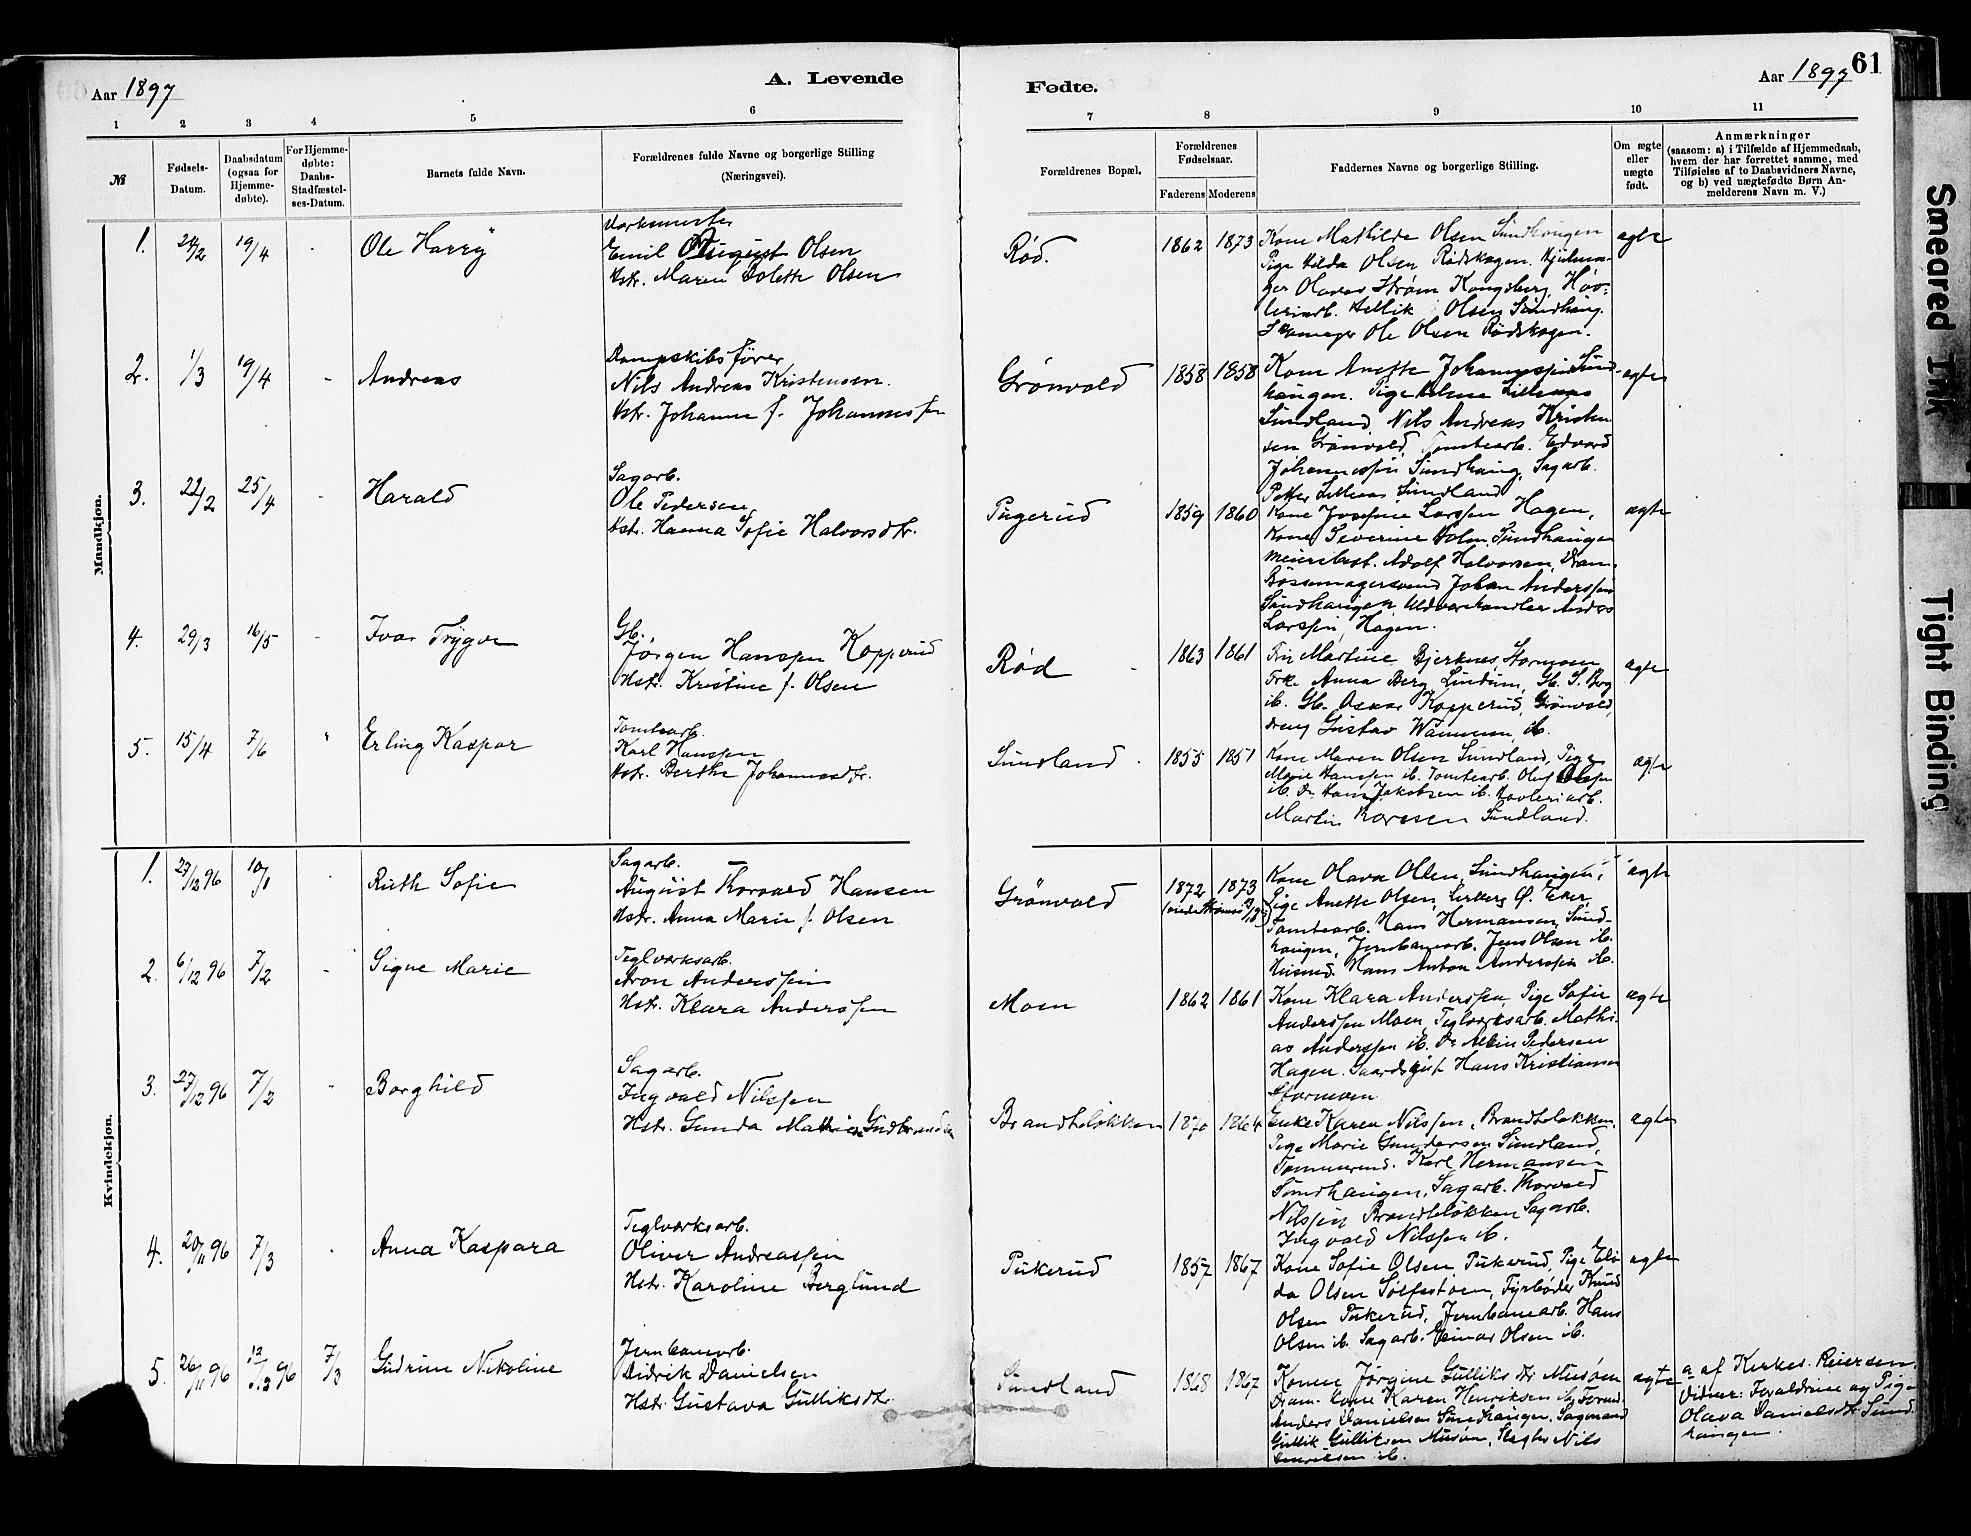 Aar 1897
A. Levende
Fødte.
Aar 1897
61
1 2 3 4 5 6 7 8 9 10 11
№
Fødsels-
Datum.
Daabsdatum
(ogsaa for
Hjemme-
døbte).
For Hjemme-
døbte:
Daabs-
Stadfæstel-
ses-Datum.
Barnets fulde Navn.
Forældrenes fulde Navne og borgerlige Stilling
(Næringsvei).
Forældrenes Bopæl,
Forældrenes
Fødselsaar.
Faderens Moderens
Faddernes Navne og borgerlige Stilling.
Om ægte
eller
uægte
født.
Anmærkninger
(saasom: a) i Tilfælde af Hjemmedaab,
hvem der har forrettet samme, med
Tilføielse af to Daabsvidners Navne,
og b) ved uægtefødte Børn An-
melderens Navn m. V.)
Mandkjøn.
1. 24/2 19/4 - Ole Harry
Emil August Olsen
Hstr. Maren Olsen
Rød. 1862 1873
Kone Mathilde Olsen Sundhaugen
Pige Hilda Olsen Rødskogen.
Olaves Strøm Kongsberg, Høv-
leriarb. Hellik Olsen Sundhaug.
Ole Olsen Rødskogen.
ægte
2. 1/3 19/4 - Andreas
Dampskibsfører
Nils Andreas Kristensen.
Hstr. Johanne f. Johannessen
Grønvold 1858 1858
Kone Anette Johannessen Sund-
haugen. Pige
Sundland, Nils Andreas Kristen
sen Grønvold, Tomtearb. Edvard
Johannessen Sundhaug, Sagarb.
Petter Sundland
ægte
3. 22/2 25/4 - Harald
Sagarb.
Ole Pedersen
Hstr. Hanna Sofie Halvorsdtr.
Pugerud 1859 1860
Kone Josefine Larssen Hagen,
Kone Severine Holm Sundhaugen
Meieribest. Adolf Halvorsen, Dram.
Bøssemagersvend Johan Anderssen
Sundhaugen, Uldvarehandler Anders
Larssen, Hagen.
ægte
4. 29/3 16/5 - Ivar Trygve
Gb.
Jørgen Hanssen Kopperud
Hstr. Kristine f. Olsen
Rød 1863 1861
Martine Bjerknes, Stormoen
Frke Anna Berg, Lindum, Gb. S. Berg
ib. Gb. Oskar Kopperud, Grønvold,
dreng Gustav ib.
ægte
5. 15/4 7/6 " Erling Kaspar
Tomtearb.
Karl Hanssen
Hstr. Berthe Johannesdtr.
Sundland. 1855 1851
Kone Maren Olsen Sundland, Pige
Marie Hanssen ib. Tomtearb. Oluf Olsen
ib. Do Hans Jakobsen ib. Høvleriarb.
Martin Sundland.
ægte
Kvindekjøn.
1. 27/12 96 10/1 Ruth Sofie
Sagarb.
August Thorvald Hansen
Hstr. Anna Marie f. Olsen
Grønvold 1872 1873
Kone Olava Olsen, Sundhaugen,
Pige Anette Olsen, Ø. Eker,
Tomtearb. Hans Hermansen, Sund-
haugen, Jernbanearb. Jens Olsen ib.
Hans Anton Anderssen ib.
ægte
2. 6/12 96 7/2 - Signe Marie
Teglværksarb.
Aron Anderssen
Hstr. Klara Anderssen
Moen 1862 1861
Kone Klara Anderssen, Pige Sofie
Anderssen Moen, Teglværksarb. Mathi-
as Anderssen ib. Do Albin Pedersen
Hagen. Gaardsgut Hans Kristiansen
Stormoen
ægte
3. 27/12 96 7/2 - Borghild
Sagarb.
Ingvald Nilssen
Hstr. Gunda Mathea Gudbrandsen
Brandteløkken 1870 1864
Enke Karen Nilssen, Brandteløkken,
Pige Marie Gundersen Sundland,
Tømmerund. Karl Hermansen
Sundhaugen, Sagarb. Thorvald
Nilssen Brandteløkken Sagarb.
Ingvald Nilssen ib.
ægte
4. 20/11 96 7/3 - Anna Kaspara
Teglværksarb.
Oliver Andreassen
Hstr. Karoline Berglund
Pukerud 1857 1867
Kone Sofie Olsen Pukerud, Pige Eli-
da Olsen Solfestøen, Fyrbøder Knud
Olsen Pukerud, Jernbanearb. Hans
Olsen ib. Sagarb. Einar Olsen ib.
ægte
5. 26/11 96 12/12 96 7/3 Gudrun Nikoline
Jernbanearb.
Didrik Danielsen
Hstr. Gustava Gulliksdtr.
Sundland 1868 1867
Konen Jørgine Gulliksdtr Musøen
Dram. Kone Karen Henriksen ib.
Anders Danielsen Sundhaugen, Sagmand
Gullik Gulliksen Musøen, Slagter Nils
Henriksen ib.
ægte
a. af Kirkes. Reiersen.
Vidner: Forældrene og Pige
Olava Danielsdtr Sund
haugen.
Smeared Ink
Tight Binding